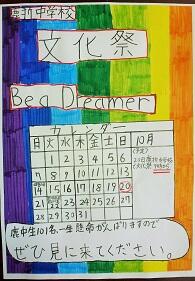 鹿折中学校
文化祭
Be a Dreamer
カレンダー
月 火 水 木 金 土 日
10月
1 2 3 4 5 6
7 8 9 10 11 12 13
14 15 16 17 18 19 20
21 22 23 24 25 26 27
28 29 30 31
(予定)
20日鹿折中学校
文化祭
鹿中生101名、一生懸命がんばりますので
ぜひ見に来てください。